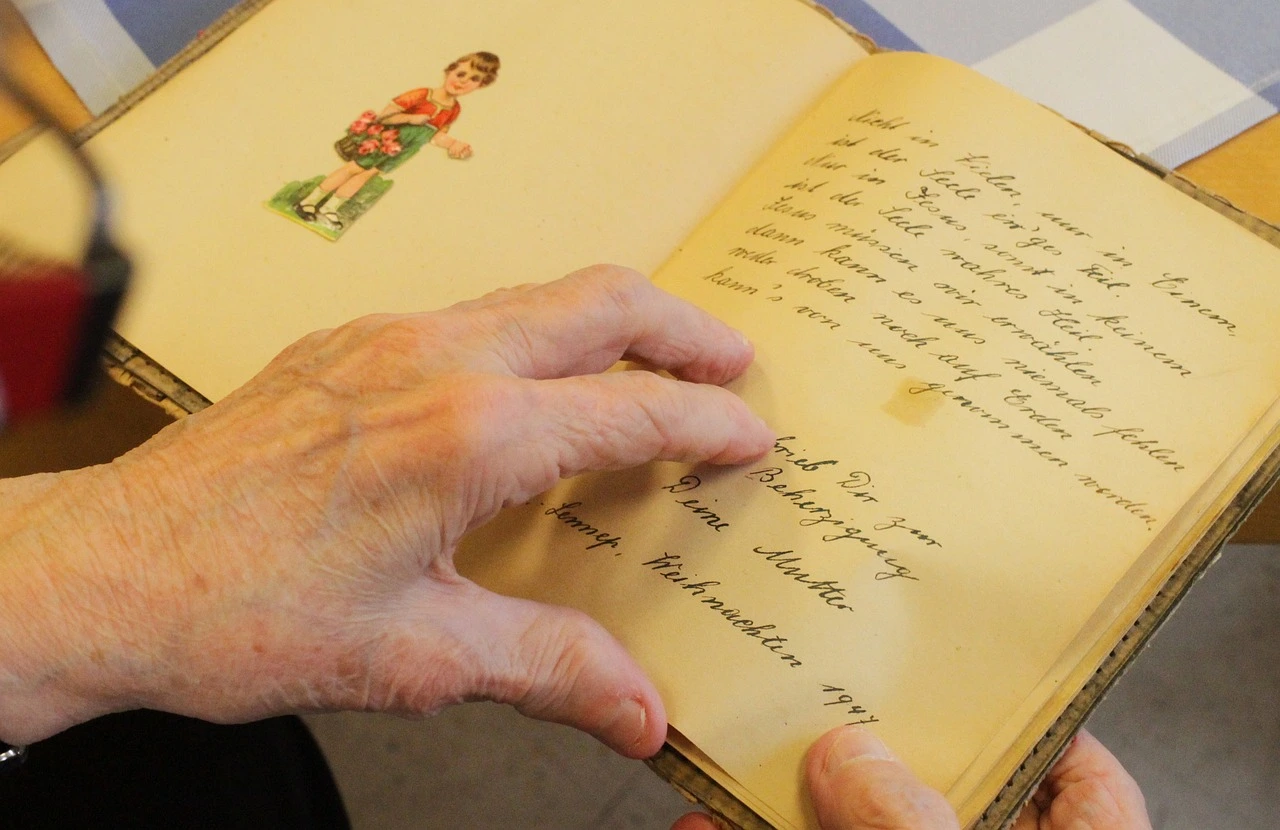 Nicht in Vielen, nur in Einem,
ist der Seele ein'ges Teil.
Nur in Jesus, sonst in keinem
ist der Seele wahres Heil
Jesus müssen wir erwählen
dann kann es uns niemals fehlen
weder droben noch auf Erden
kann's von uns genommen werden.
rieb Dir zur
Beherzigung
Deine Mutter
Lennep, Weihnachten 1947